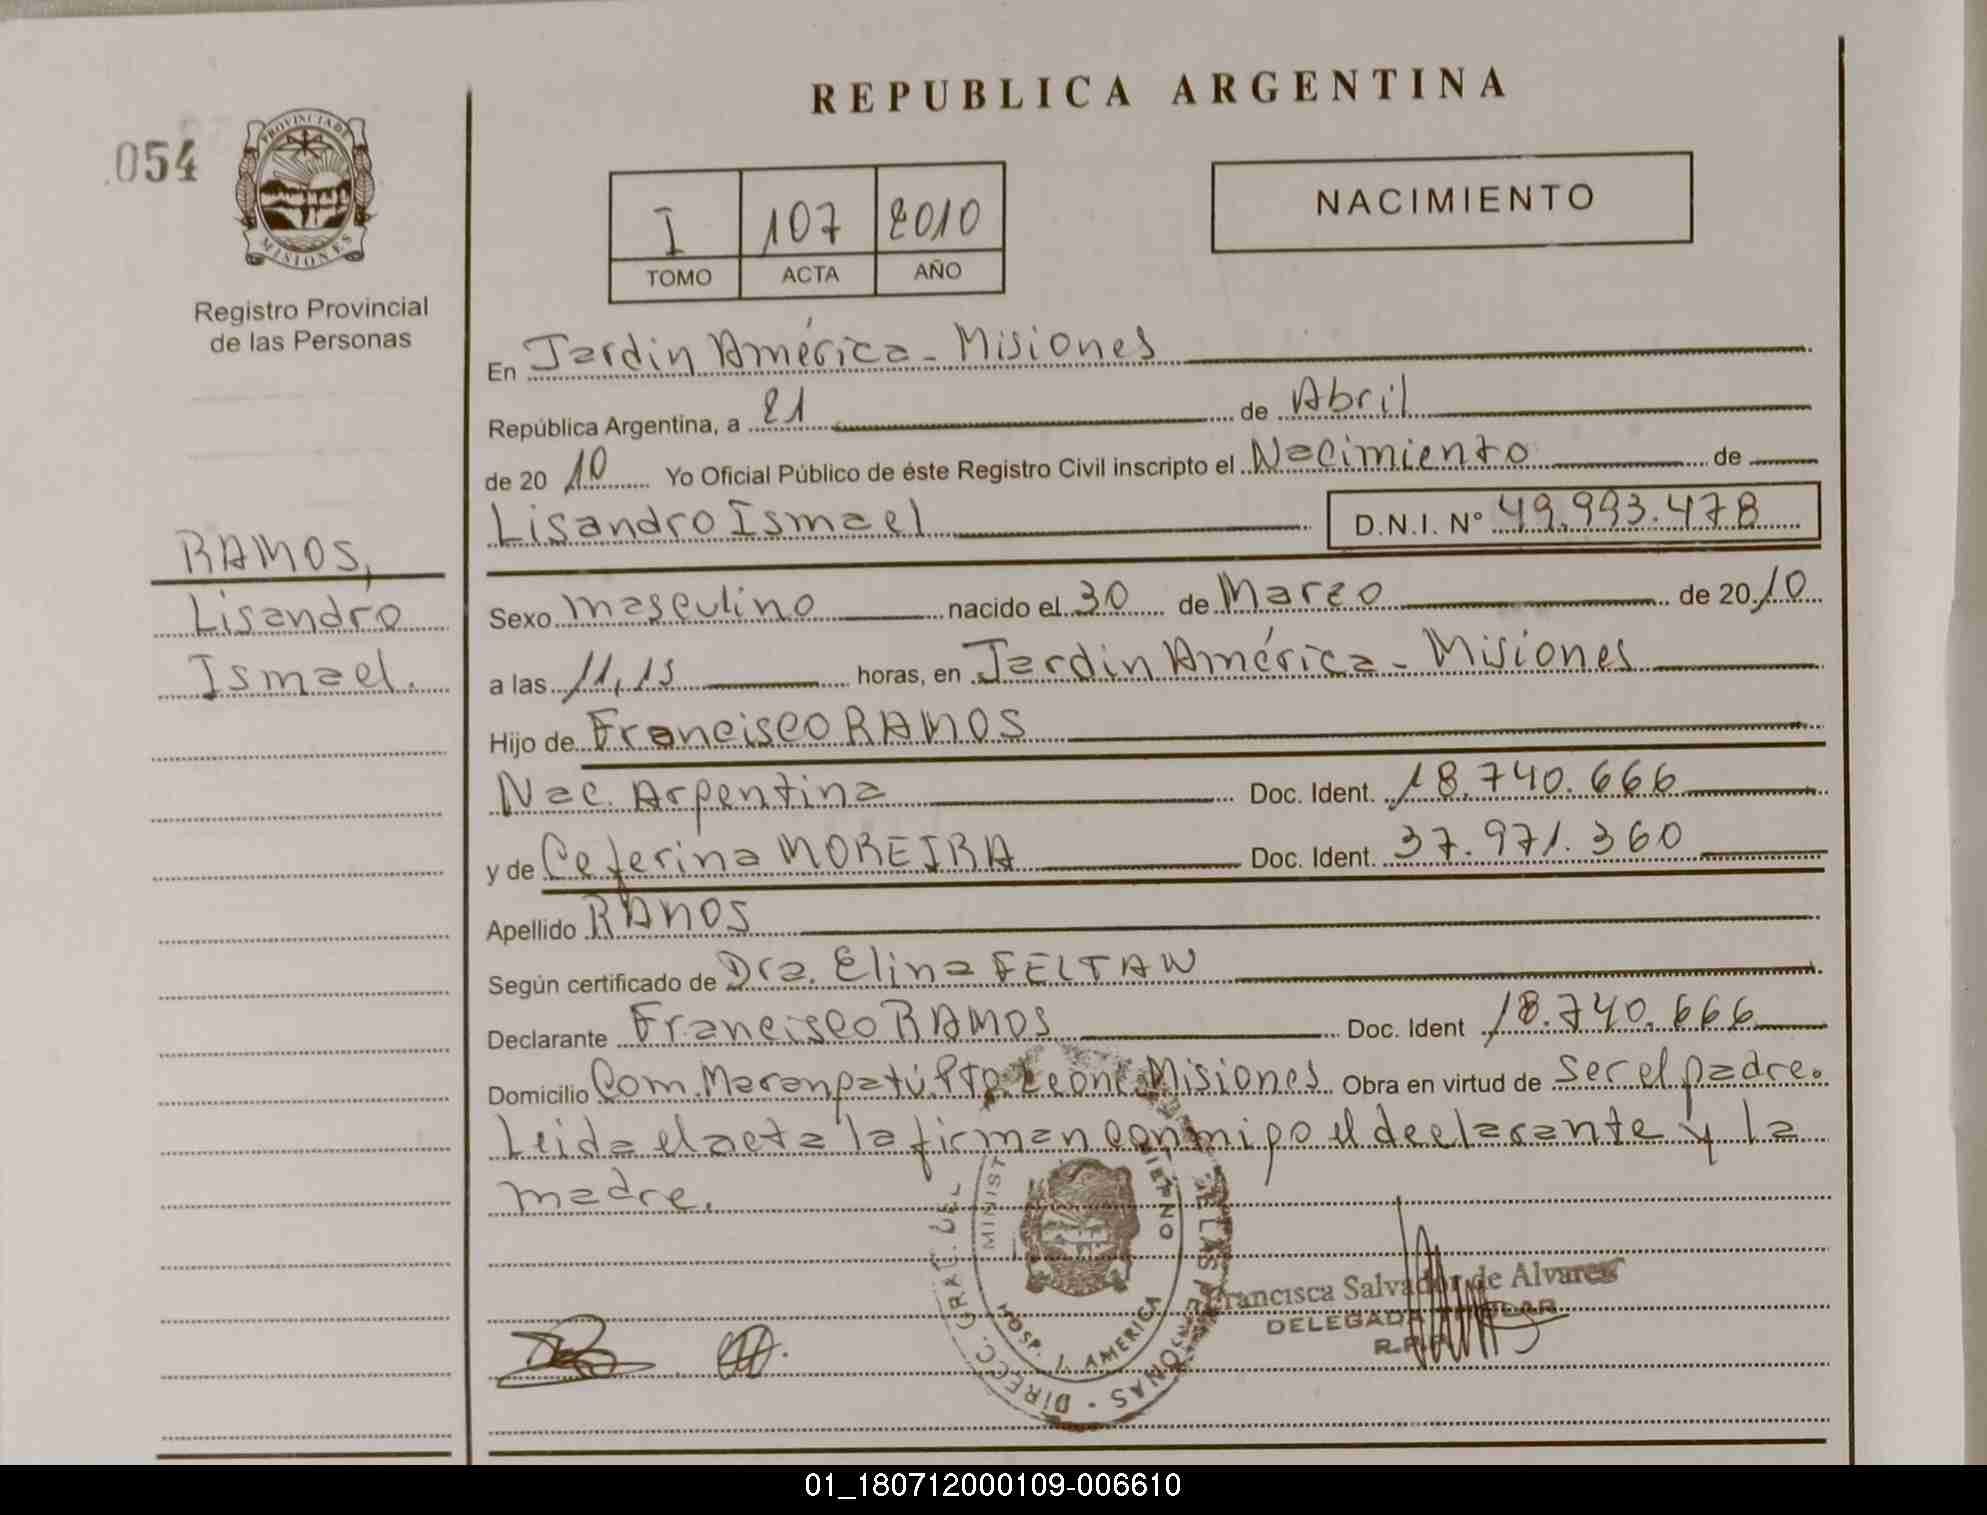 REPUBLICA ARGENTINA
054
PROVINCIA DE
MISIONES
Registro Provincial
de las Personas
I 107 2010
TOMO ACTA AÑO
NACIMIENTO
En Jardín América - Misiones
República Argentina, a 21 de Abril
de 20 10 Yo Oficial Público de éste Registro Civil inscripto el Nacimiento de
Lisandro Ismael D.N.I. N° 49.993.478
RAMOS,
Lisandro
Ismael.
Sexo masculino nacido el 30 de Marzo de 20 10
a las 11,15 horas, en Jardín América - Misiones
Hijo de Francisco RAMOS
Nac. Argentina Doc. Ident. 18.740.666
y de Ceferina MOREIRA Doc. Ident. 37.971.360
Apellido RAMOS
Según certificado de Dra. Elina
Declarante Francisco RAMOS Doc. Ident 18.740.666
Domicilio Com. Marangatú. Pto Leoni. Misiones Obra en virtud de ser el padre.
Leida el acta la firman conmigo el declarante y la
madre.
DIRECC. GRAL. DE LAS PERSONAS
HOSP. J. AMERICA
Francisca Salvador de Alvarez
DELEGADA
01_180712000109-006610